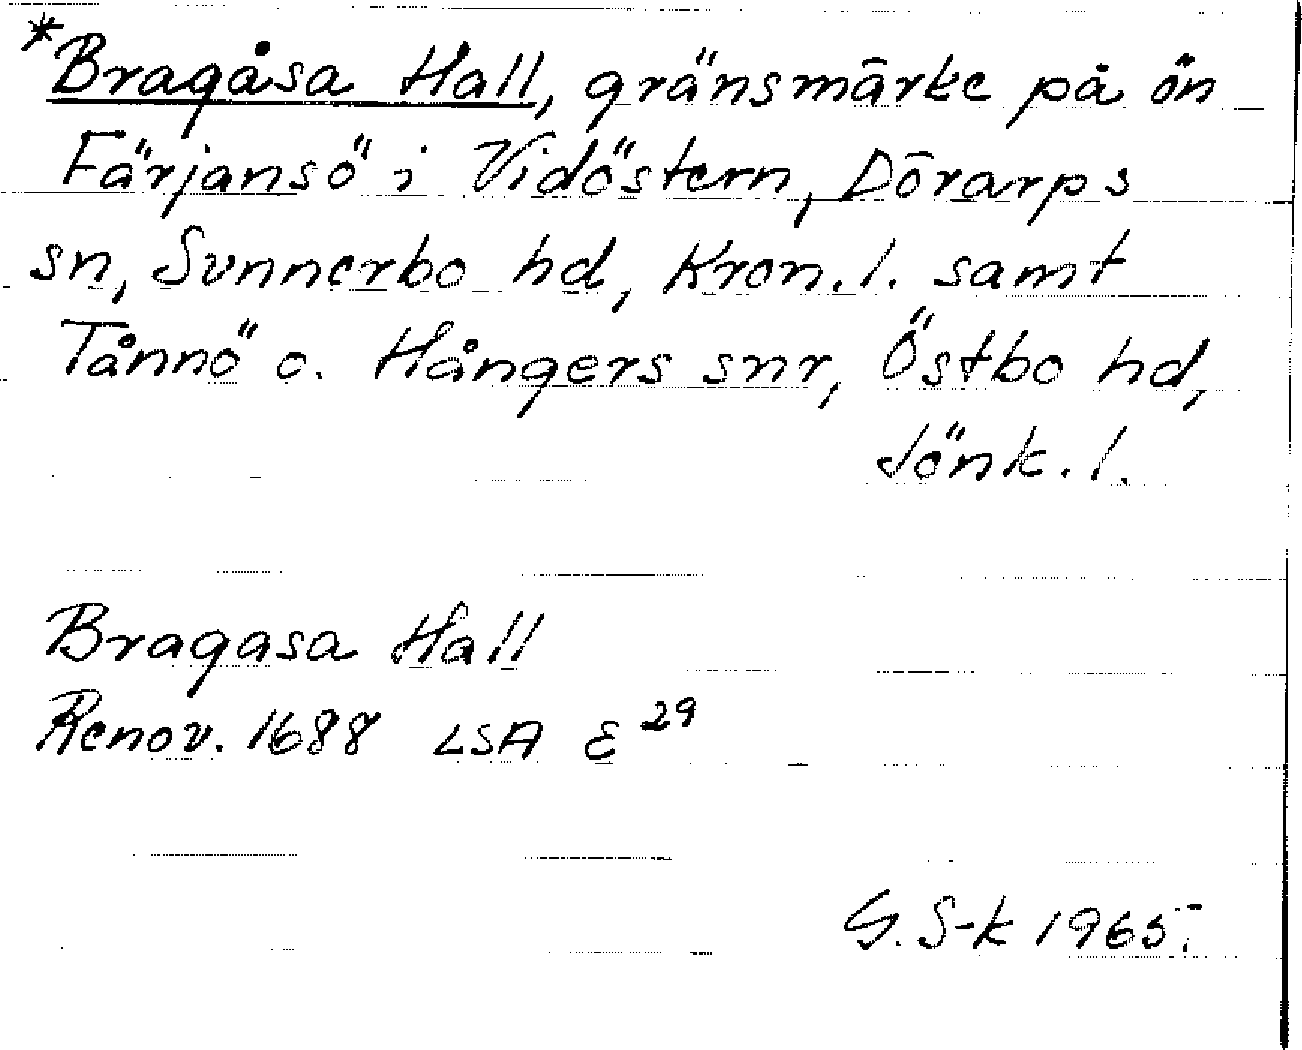 *Bragåsa Hall, gränsmärke på ön
Färjansö i Vidöstern, Dörarps
sn, Sunnerbo hd, Kron. l. samt
Tånnö o. Hångers snr, Östbo hd,
Jönk. l.
Bragasa Hall
Renov. 1688 LSA E 29
G. S-k 1965.